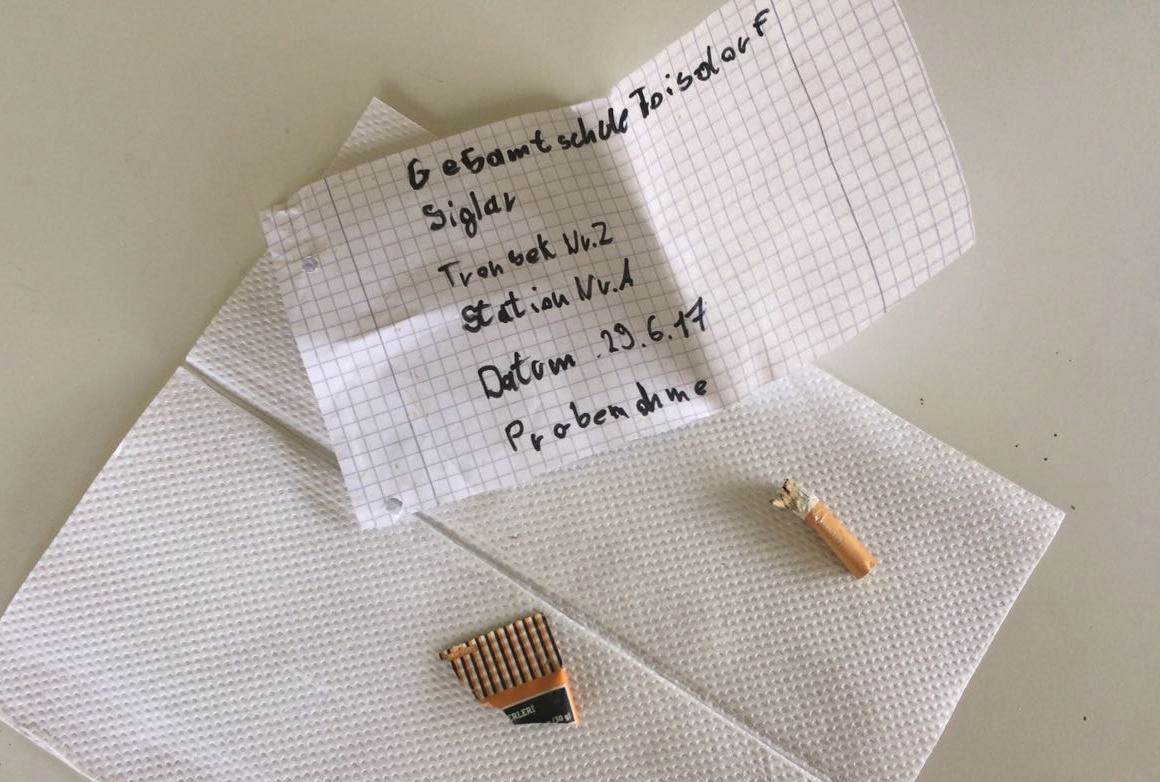 Gesamtschule Toisdorf
Siglar
Transek Nr.2
Station Nr.1
Datum 29.6.17
Probenahme
ERLERİ
(30 g)